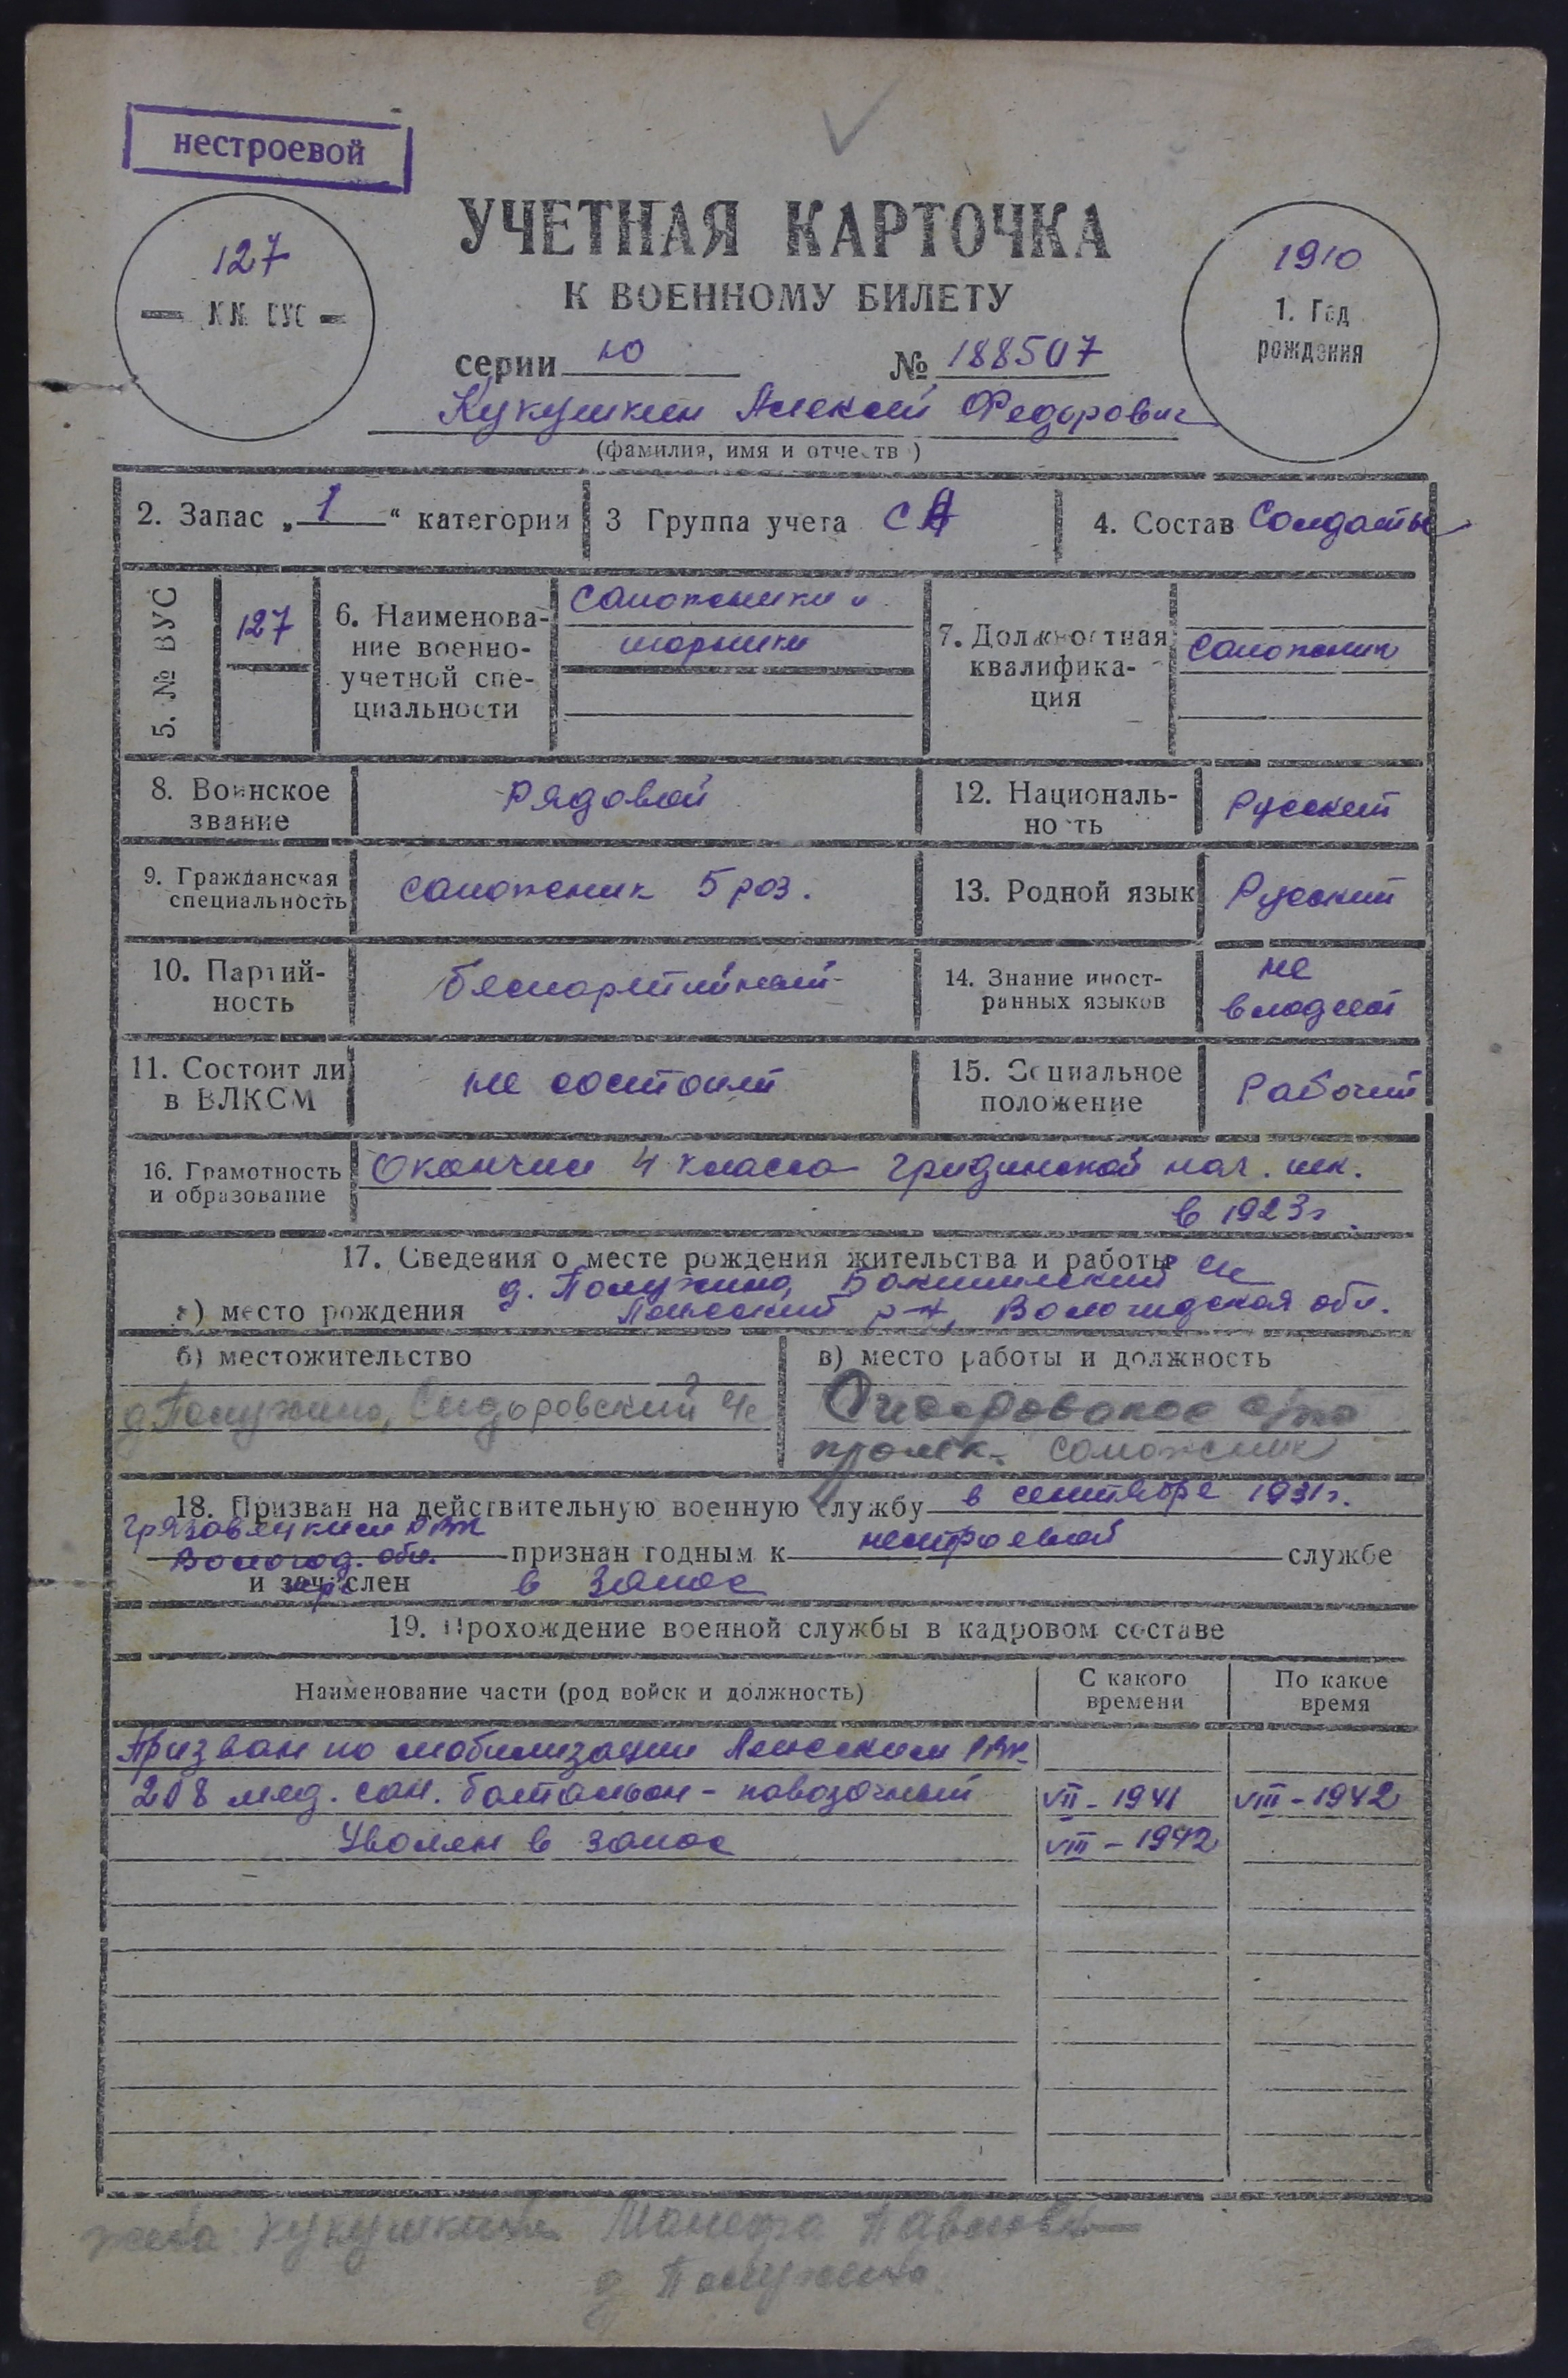 нестроевой
УЧЕТНАЯ КАРТОЧКА
К ВОЕННОМУ БИЛЕТУ
127
1910
1. Год
рождения
серии Ю № 188507
Кукушкин Алексей Федорович
(фамилия, имя и отчеств )
2. Запас „1“ категории
3 Группа учета СА
4. Состав Солдаты
5. № ВУС
127
6. Наименова-
ние военно-
учетной спе-
циальности
Сапожники и
шорники
7. Должностная
квалифика-
ция
Сапожник
8. Воинское
звание
Рядовой
12. Националь-
но ть
Русский
9. Гражданская
специальность
сапожник 5 раз.
13. Родной язык
Русский
10. Партий-
ность
беспартийный
14. Знание иност-
ранных языков
не
владеет
11. Состоит ли
в ВЛКСМ
не состоит
15. Социальное
положение
Рабочий
16. Грамотность
и образование
Окончил 4 класса Гридинской нач. шк.
в 1923г.
17. Сведения о месте рождения жительства и работы
д. Полужино, с/с
а) место рождения
р-н, Вологодская обл.
б) местожительство
д. Полужино, Сидоровский с/с
в) место работы и должность
промк. сапожник
18. Призван на действительную военную службу в сентябре 1931г.
Грязовецким РВК
Вологод. обл. признан годным к нестроевой службе
и зачислен в запас
19. Прохождение военной службы в кадровом составе
Наименование части (род войск и должность)
С какого
времени
По какое
время
Призван по мобилизации РВК
208 мед. сан. батальон - повозочный VII - 1941 VIII - 1942
Уволен в запас VIII - 1942
жена Кукушкина Павловна
д Полужино